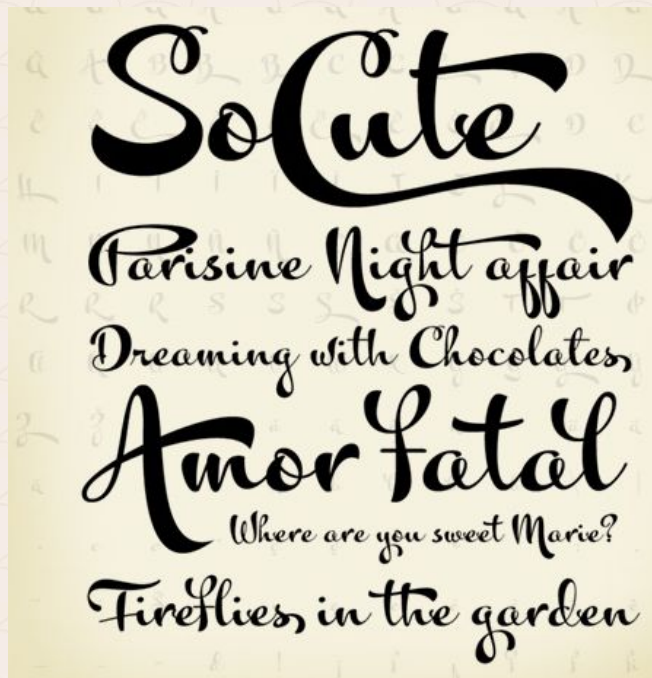 SoCute
Parisine Night affair
Dreaming with Chocolates
Amor fatal
Where are you sweet Marie?
Fireflies in the garden